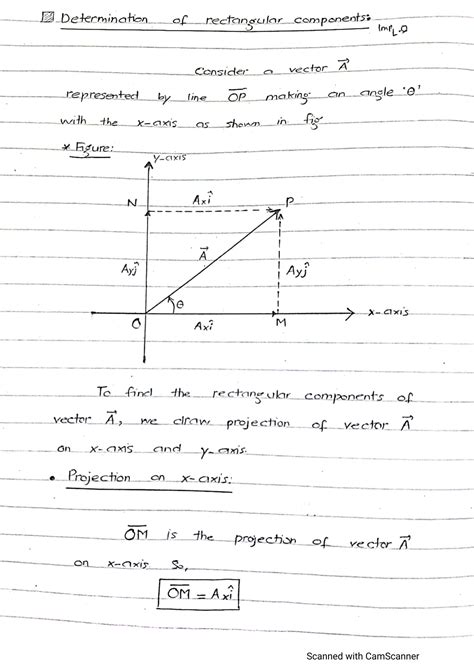 Determination of rectangular components:
Imp. Q
Consider a vector A⃗
represented by line O̅P̅ making an angle 'θ'
with the x-axis as shown in fig
* Figure:
y-axis
N Ax î P
A⃗
Ay ĵ Ay ĵ
θ
x-axis
O Ax î M
To find the rectangular components of
vector A⃗, we draw projection of vector A⃗
on x-axis and y-axis.
• Projection on x-axis:
O̅M̅ is the projection of vector A⃗
on x-axis So,
O̅M̅ = Ax î
Scanned with CamScanner